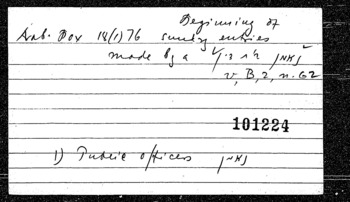 Beginning of
Arab. Box 18(1)76 sundry entries
made by a
v, B, 2, n. 62
101224
1) Public officers